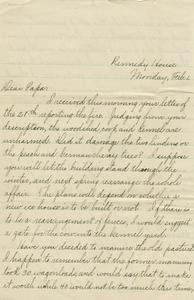 Kennedy House
Monday, Feb. 2
Dear Papa:
I received this morning your letter of
the 28th reporting the fire. Judging from your
description, the woodshed, roof and kennel are
unharmed. Did it damage the two lindens or
the peach and bermudas trees? I suppose
you will let the building stand through the
winter, and next spring rearrange the whole
affair. The plans will depend on whether a
new ice house is to be built or not. If there is
to be a rearrangement of fences, I would suggest
a gate for the cows into the kennel yard.
Have you decided to manure the old pasture?
I happen to remember that the former manuring
took 30 wagon loads, and would say that to make
it worth while 40 would not be too much this time,